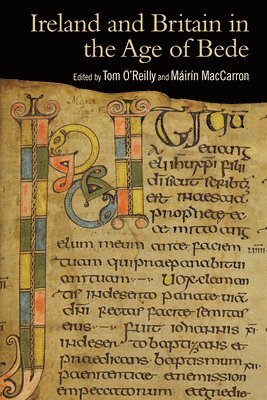 Ireland and Britain in
the Age of Bede
Edited by Tom O'Reilly and Máirín MacCarron
euang
elii ihu xpi filii
di sicut
est in
propheta
ce mitto ang
elum meum ante faciem
tuam qui praeparabit ui
am tuam uox claman
tis in deserto parate
dni rectas facite semitas
eius fuit iohannis
in deserto baptizans et
praedicans baptismum
paenitentiae in remission
em peccatorum et egredie